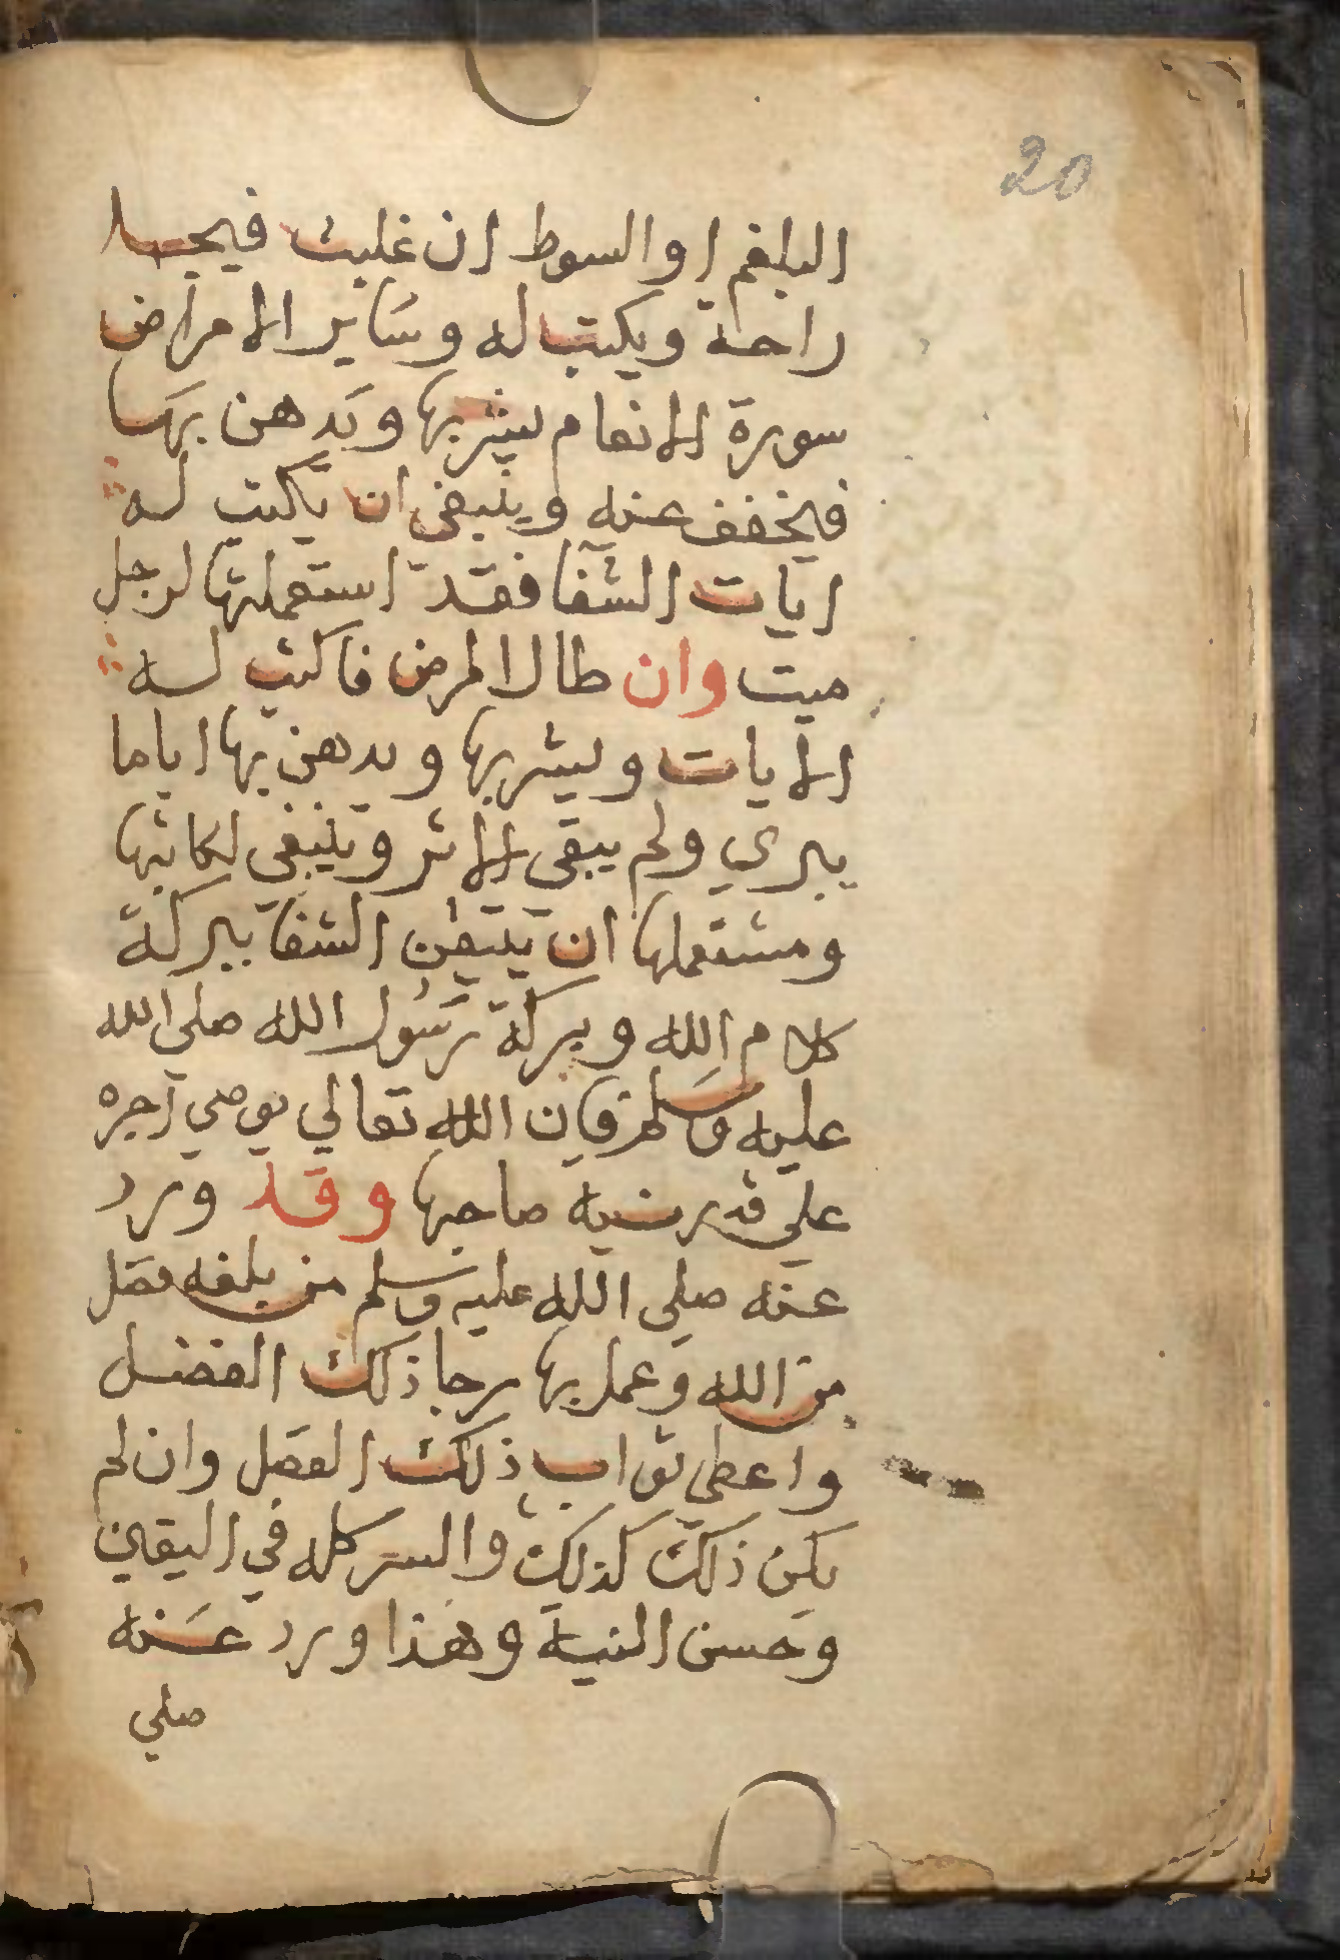 20
البلغم او السوط ان غلبت فيجد
راحة ويكتب له وساير الامراض
سورة الانعام ليشربها ويدهن بها
فيخفف عنه وينبغي ان يكتب له
ايات الشفا فقد استعملتها لرجل
ميت وان طال المرض فاكتب له
الايات ويشربها ويدهن بها اياما
يبري ولم يبقى الاثر وينبغي لكاتبها
ومستعملها ان يتيقن الشفا ببركة
كلام الله وبركة رسول الله صلي الله
عليه وسلم فان الله تعالي آجره
علي قدر نية صاحبها وقد ورد
عنه صلى الله عليه وسلم من بلغه فضل
من الله وعمل بها رجا ذلك الفضل
واعطي ثواب ذلك الفضل وان لم
يكن ذلك كذلك والسر كله في اليقين
وحسن النية وهذا ورد عنه
صلي